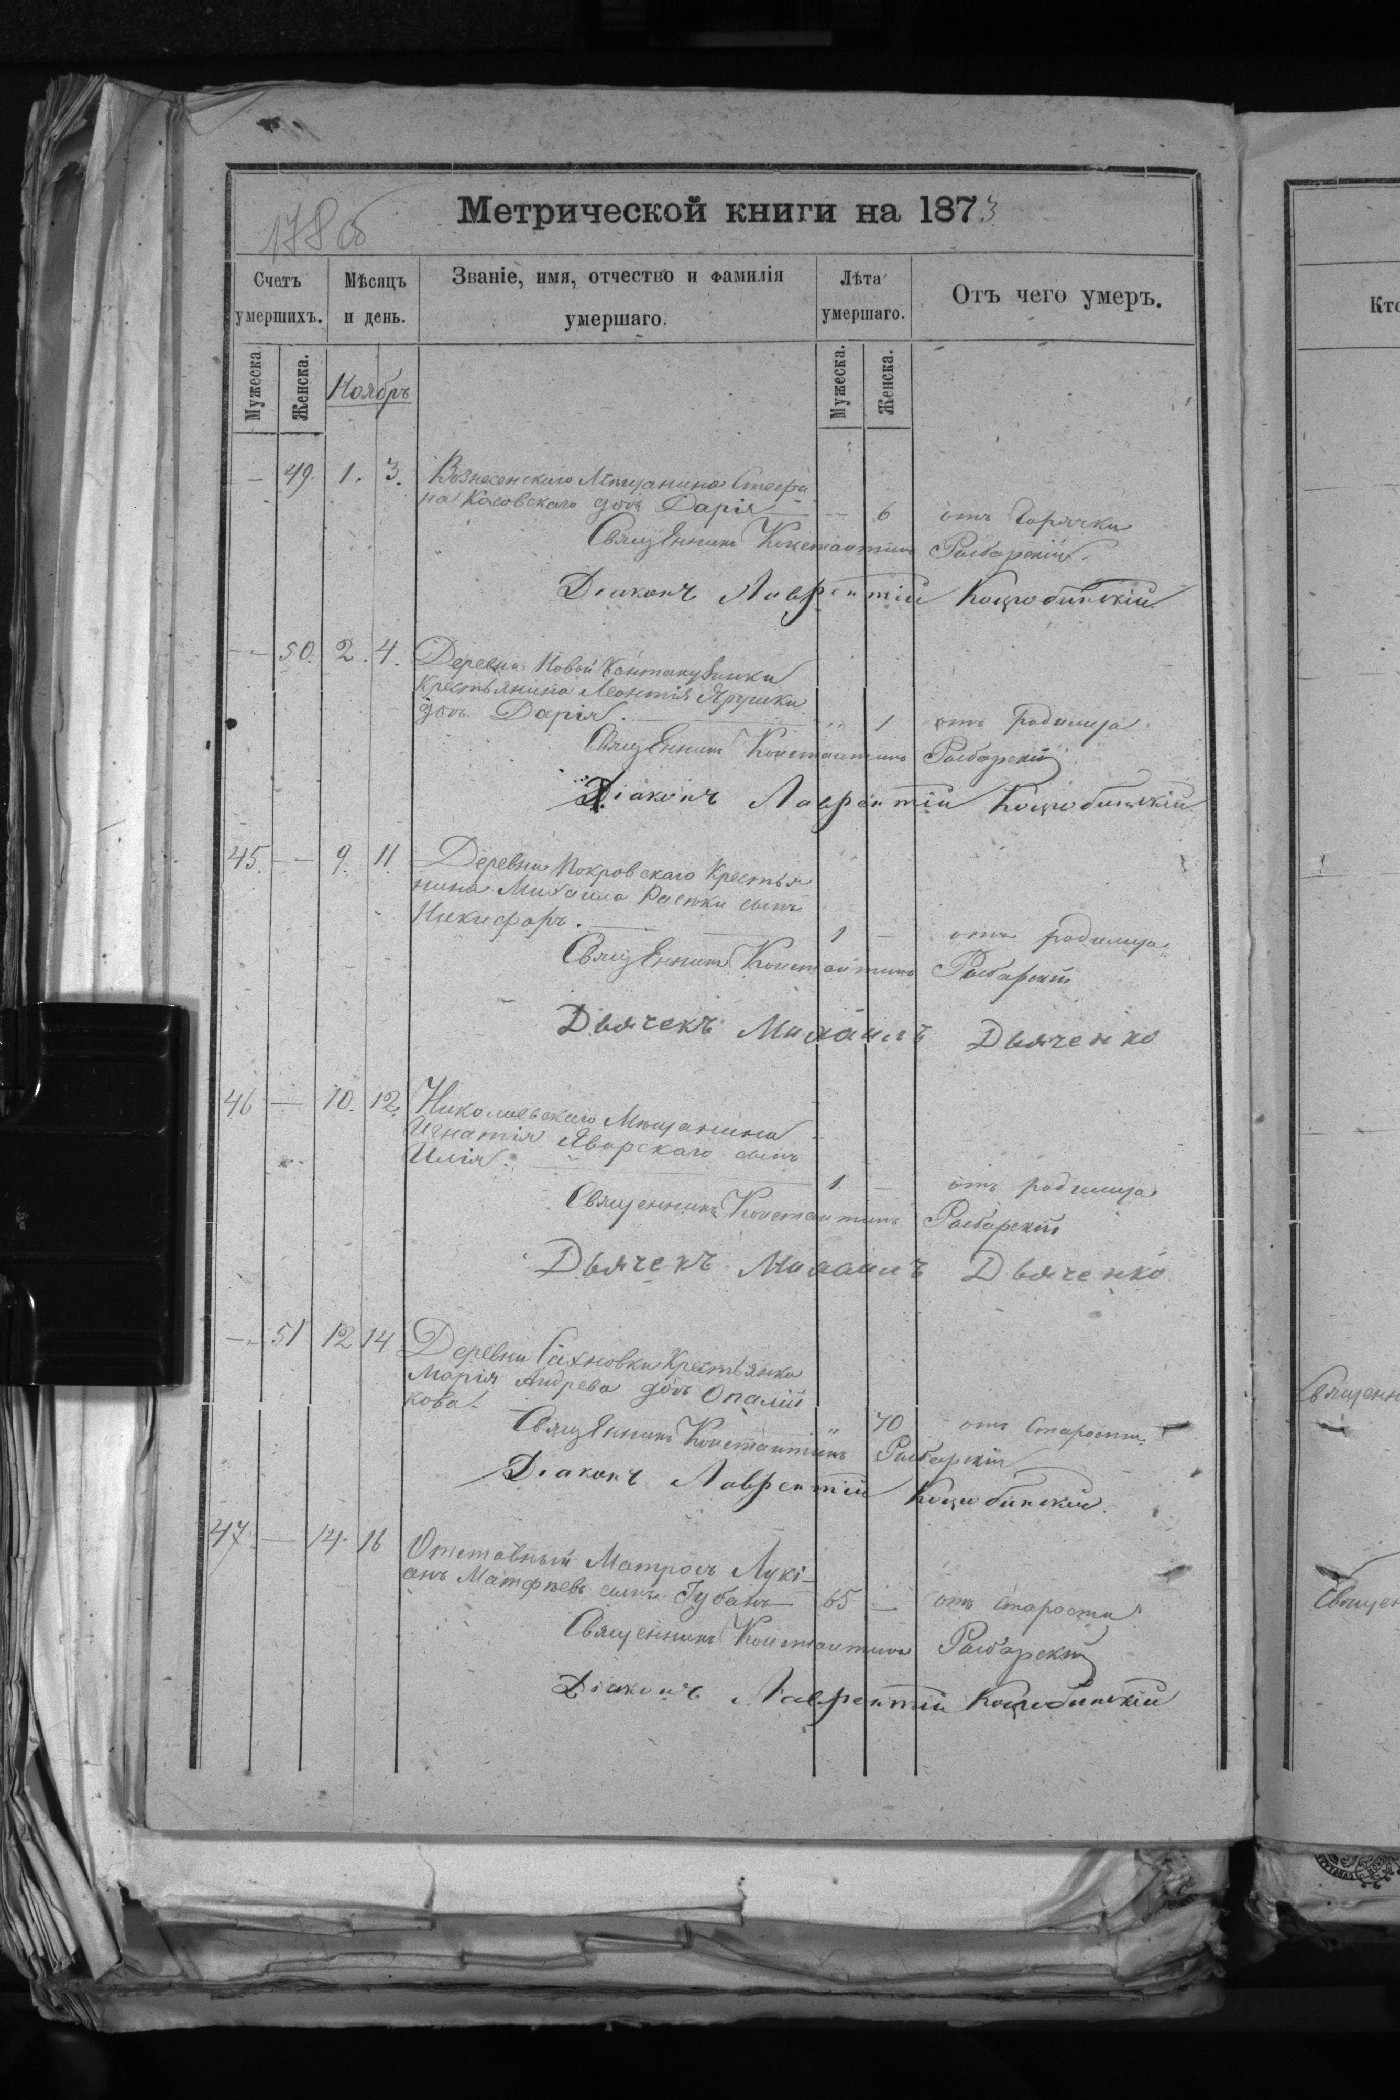 Метрической книги на 1873
178 об
Счетъ умершихъ.
Мѣсяцъ и день.
Званіе, имя, отчество и фамилія умершаго.
Лѣта умершаго.
Отъ чего умеръ.
Мужеска
Женска.
Ноябрь
Мужеска.
Женска.
— 49. 1. 3. Вознесенскаго Мѣщанина Стефа
на Косовскаго дочь Дарія — 6 отъ Горячки
Священникъ Константинъ
Діаконъ Лаврентій Коцюбинскій
— 50. 2. 4. Деревни Новой Кантакузинки
Крестьянина Леонтія Ярушки
дочь Дарія. „ 1 отъ родимца
Священникъ Константинъ
Діаконъ Лаврентій Коцюбинскій
45. — 9. 11. Деревни Покровскаго Крестья
нина Михаила сынъ
Никифоръ. 1 — отъ родимца
Священникъ Константинъ
Дьячекъ Михаилъ Дьяченко
46 — 10. 12. Николаевскаго Мѣщанина
Игнатія Яворскаго сынъ
Илія. 1 — отъ родимца
Священникъ Константинъ
Дьячекъ Михаилъ Дьяченко
— 51 12 14 Деревни Сахновки Крестьянка
Марія Андрева дочь Опалій
кова. „ 70 отъ старости.
Священникъ Константинъ
Діаконъ Лаврентій Коцюбинскій.
47 — 14. 16 Отставный Матросъ Лукі-
анъ Матфѣевъ сынъ Губань 65 — отъ старости
Священникъ Константинъ
Діаконъ Лаврентій Коцюбинскій
Кто
Священн
Священ